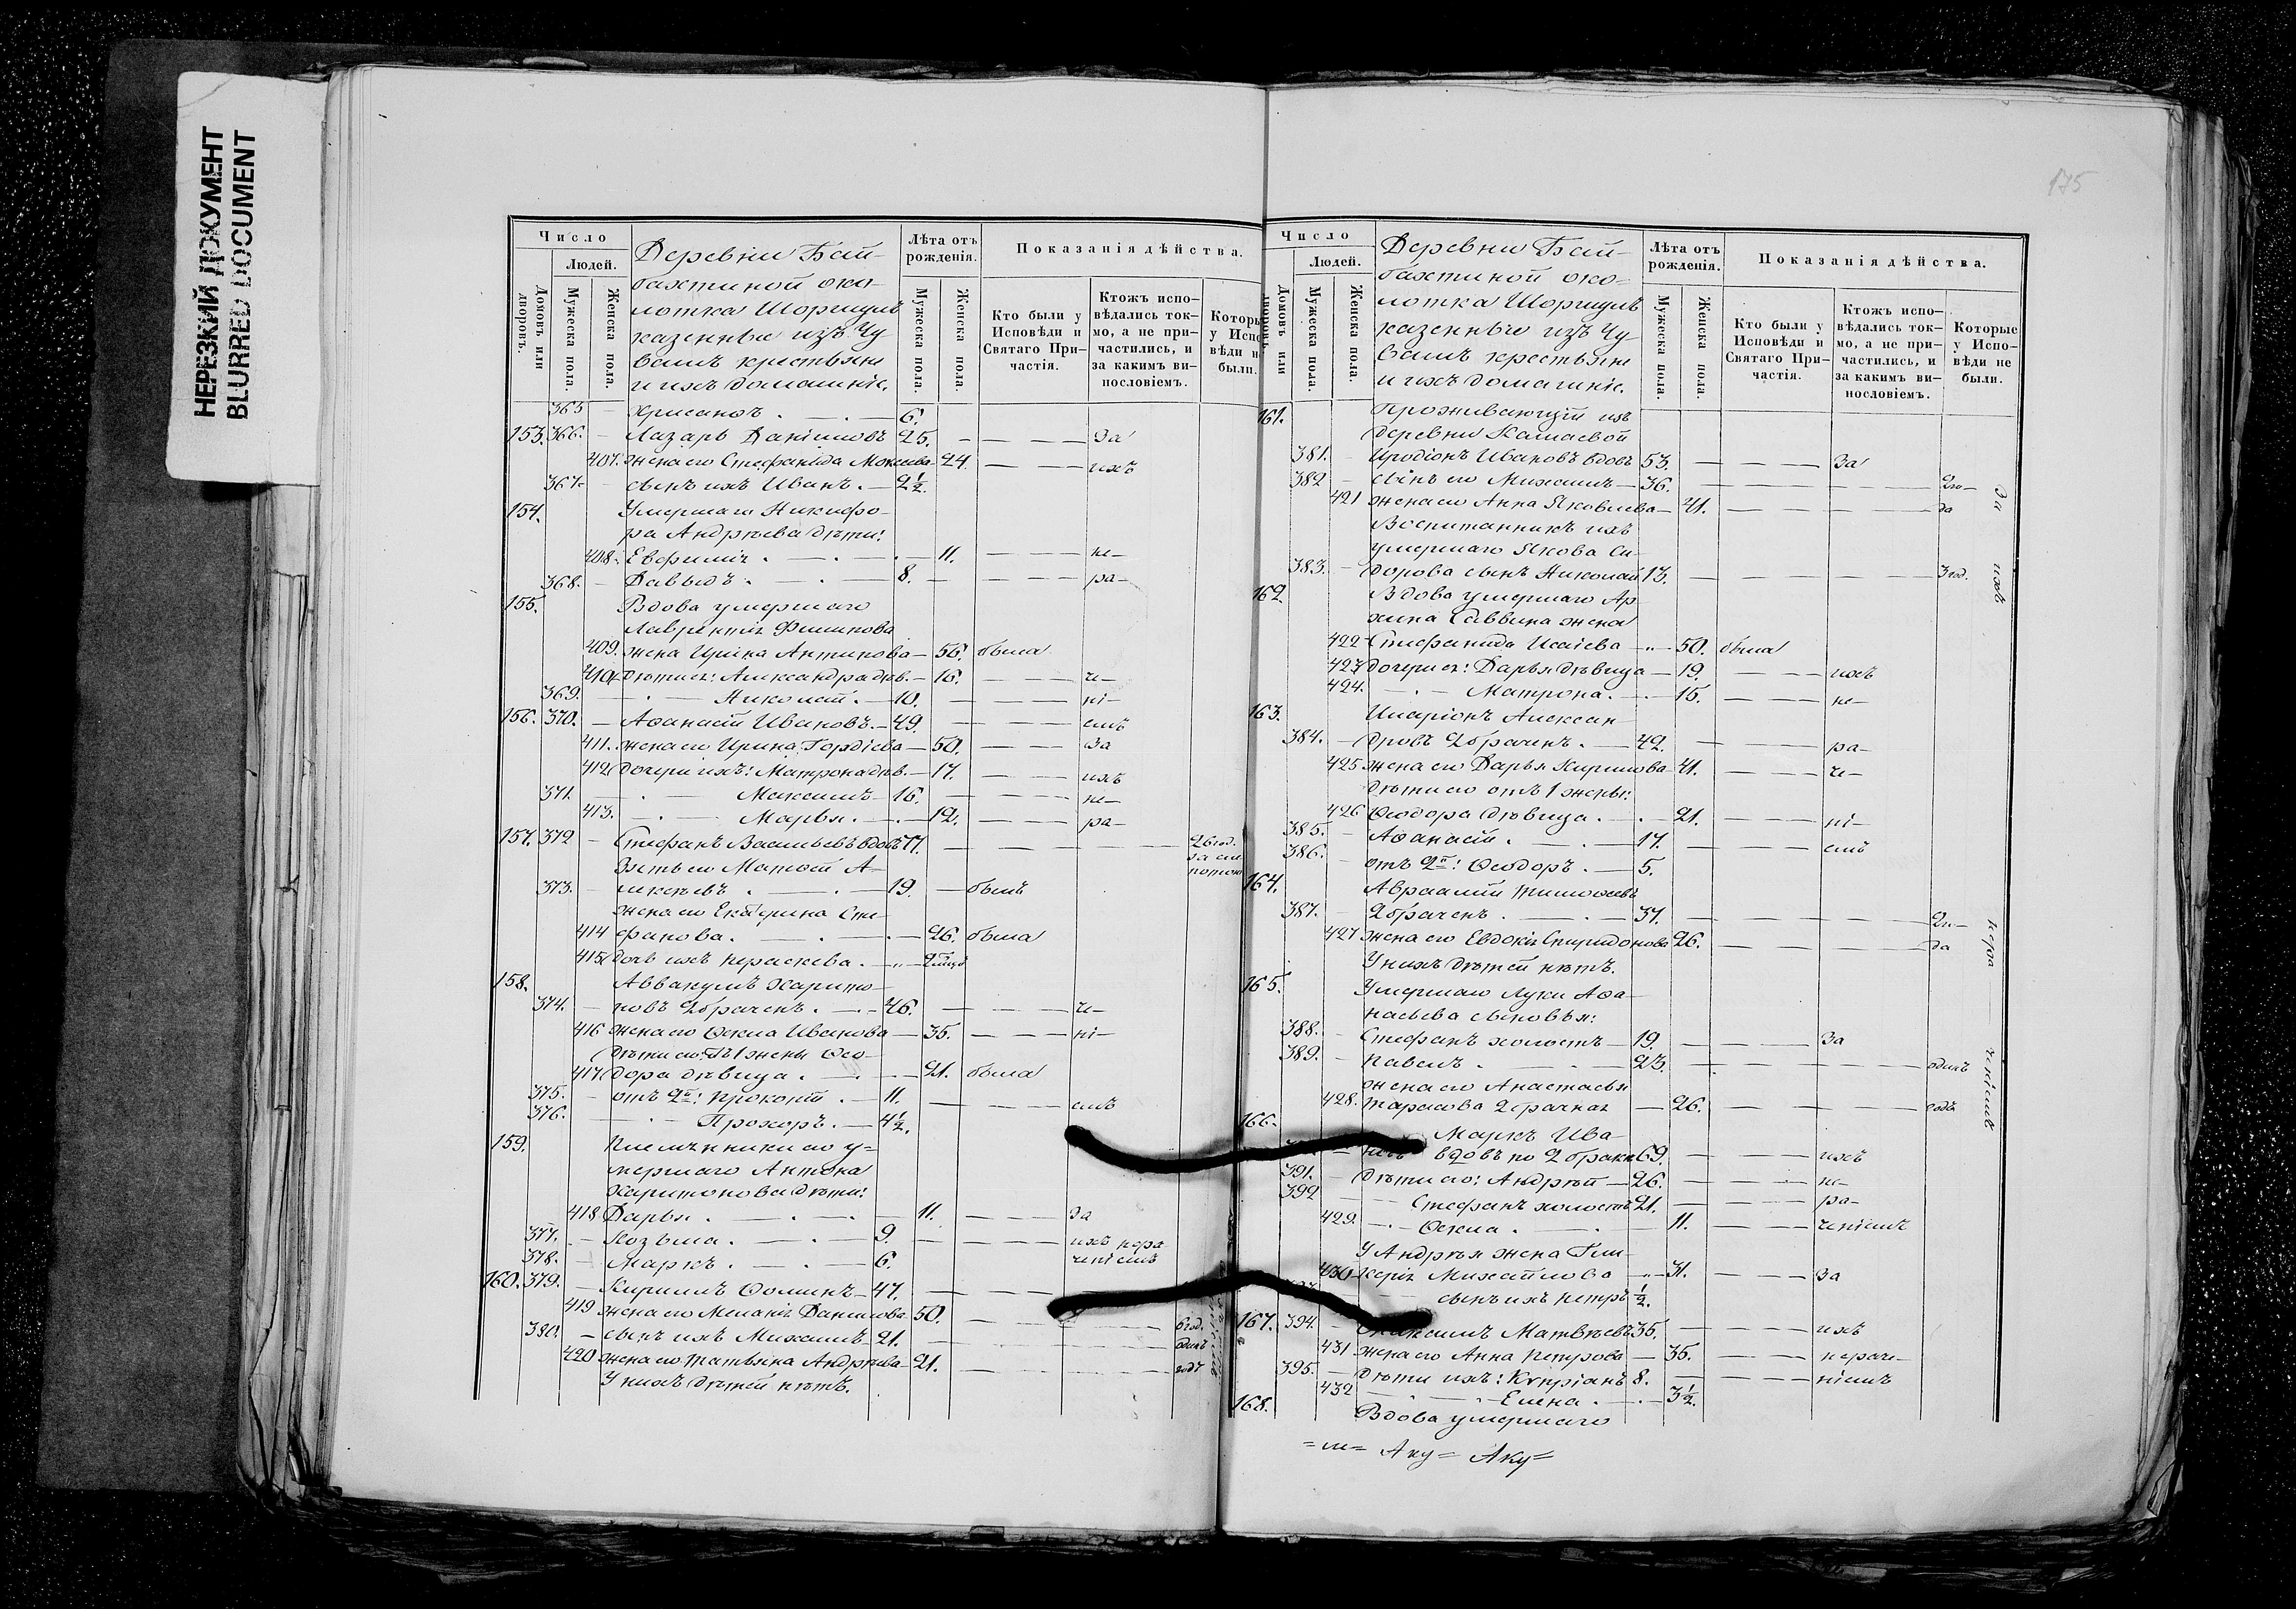 НЕРЕЗКИЙ ДОКУМЕНТ
BLURRED DOCUMENT
175
Число
Людей.
Домовъ или дворовъ.
Мужеска пола.
Женска пола.
Деревни Бай-
бахтиной око-
лотка Шоршулъ
казенные изъ Чу-
вашъ крестьяне
и ихъ домашніе.
Лѣта отъ рожденія.
Мужеска пола.
Женска пола.
Показанія дѣйства.
Кто были у Исповѣди и Святаго При-частія.
Ктожъ испо-вѣдались ток-мо, а не при-частились, и за какимъ ви-нословіемъ.
Которы у Испо вѣди н были.
365 — Хрисанъ . — 6.
153. 366. — Лазарь Даніиловъ 25. — — — — За
407. жена его Стефанида Мокеева — 24. — — — ихъ
367. — сынъ ихъ Иванъ. — 2½.
154. Умершаго Никифо-
ра Андрѣева дѣти:
408. Евфимія . — . — 11. — — — не—
368. — Давыдъ . — 8. — — — ра—
155. Вдова умершаго
Лаврентія Филипова
409. жена Ирина Антипова — 56. была
410. дѣти ея: Александра дѣв. — 16. — — — че—
369. — Николай. — 10. — — — ні—
156. 370. — Аѳанасій Ивановъ. — 49. — — — емъ
411. жена его Ирина Гордіева — 50. — — — За
412. дочери ихъ: Матрона дѣв. — 17. — — — ихъ
371. — Максимъ — 16. — — — не—
413. — Марья. — 12. — — — ра—
157. 372 — Стефанъ Васильевъ вдовъ 77. — — — — 26 год.
Зять его Матвѣй А-
373. — лексѣевъ . — 19. — былъ
жена его Екатерина Сте-
414 фанова. — . — 26. была
415. дочь ихъ Параскева . — „ —
158. Аввакумъ Харито-
374. — новъ 2 браченъ. — 46. — — — че—
416 жена его Ѳекла Иванова — 35. — — — ні—
дѣти его: отъ 1 жены Ѳео-
417. дора дѣвица . — 21. была
375. — отъ 2й: Прокопій . — 11. — — — емъ
376. — Прохоръ. — 4½.
159. Племянники его у-
мершаго Антона
Харитонова дѣти:
418 Дарья . — . — 11. — — — За
377. — Козьма. — . — 9. — — — ихъ нера-
378. — Маркъ . — . — 6. ченіемъ
160. 379. — Кириллъ Ѳоминъ — 47. —
419 жена его Меланія Данилова — 50. — — — 6 год.
380. — сынъ ихъ Михаилъ — 21. — — — — одинъ
420 жена его Татьяна Андрѣева — 21. — — — годъ
У нихъ дѣтей нѣтъ.
Число
Людей.
Домовъ или дворовъ.
Мужеска пола.
Женска пола.
Деревни Бай-
бахтиной око-
лотка Шоршулъ
казенные изъ Чу-
вашъ крестьяне
и ихъ домашніе.
Лѣта отъ рожденія.
Мужеска пола.
Женска пола.
Показанія дѣйства.
Кто были у Исповѣди и Святаго При-частія.
Ктожъ испо-вѣдались ток-мо, а не при-частились, и за какимъ ви-нословіемъ.
Которые у Испо-вѣди не были.
161. Проживающій изъ
деревни Кашаевой
381. — Иродіонъ Ивановъ вдовъ 53. — — — За
382 — сынъ его Михаилъ — 36. — — — 2 го—
421 жена его Анна Яковлева — 41. — — — да
Воспитанникъ ихъ
умершаго Якова Си-
383. — дорова сынъ Николай 13. — — — 3 год.
За ихъ
162. Вдова умершаго Ар-
хипа Саввина жена
422 Стефанида Исаіева — „ — 50. была
423 дочери ея: Дарья дѣвица — 19. — — — ихъ
424. — Матрона. — 15. — — — не—
163. Иларіонъ Алексан-
384. — дровъ 2 браченъ . — 42. — — — ра—
425 жена его Дарья Кирилова — 41. — — — че—
дѣти его отъ 1 жены:
426 Ѳеодора дѣвица. — 21. — — — ні—
385. — Аѳанасій . — 17. — — — емъ
386. — отъ 2й: Ѳеодоръ . — 5.
164. Авраамій Тимоѳеевъ
387. — 2 браченъ . — 37. — — — 2 го—
427 жена его Евдокія Спиридонова 26. — — — да
У нихъ дѣтей нѣтъ.
нера
165. Умершаго Луки Аѳа-
насьева сыновья:
388. — Стефанъ холостъ — 19. — — — За
389. — Павелъ . — 23. — — — одинъ
жена его Анастасья
428. Тарасова 2 брачная — 26. — — — годъ
ченіемъ
166. Маркъ Ива-
вдовъ по 2 бракѣ 69. — — — ихъ
391. — дѣти его: Андрей — 26. — — — не—
392 — Стефанъ холостъ 21. — — — ра—
429. — Ѳекла . — 11. — — — ченіемъ
У Андрѣя жена Гли-
430 керія Михайлова — „ — 31. — — — За
сынъ ихъ Петръ ½.
167. 394. — Максимъ Матвѣевъ 35. — — — ихъ
431 жена его Анна Петрова — 35. — — — нераче—
395. — дѣти ихъ: Кѵпріанъ 8. — — — ніемъ
432 — Елена . — 3½.
168. Вдова умершаго
=ш= Аку= Аку=